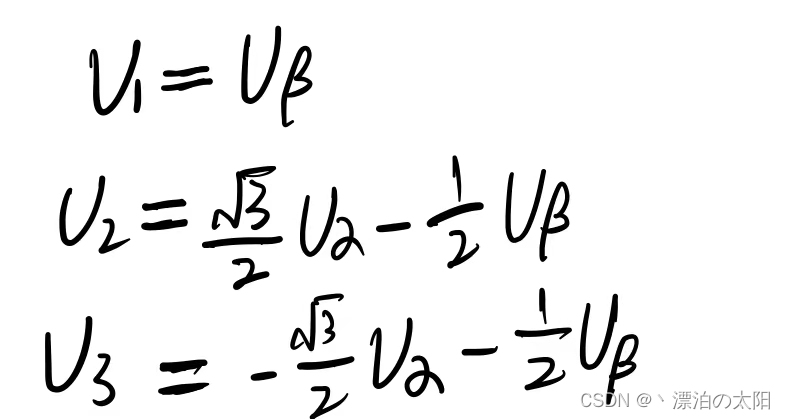 U₁ = Uβ
U₂ = √3/2 Uα - 1/2 Uβ
U₃ = - √3/2 Uα - 1/2 Uβ
CSDN @丶漂泊の太阳